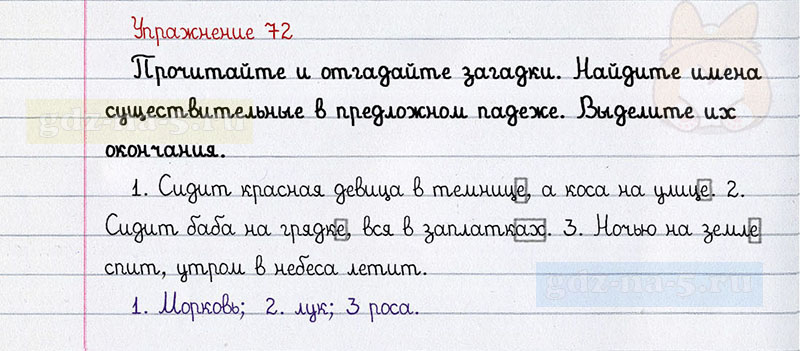 Упражнение 72
Прочитайте и отгадайте загадки. Найдите имена
существительные в предложном падеже. Выделите их
окончания.
1. Сидит красная девица в темнице, а коса на улице. 2.
Сидит баба на грядке, вся в заплатках. 3. Ночью на земле
спит, утром в небеса летит.
1. Морковь; 2. лук; 3 роса.
gdz-na-5.ru
gdz-na-5.ru